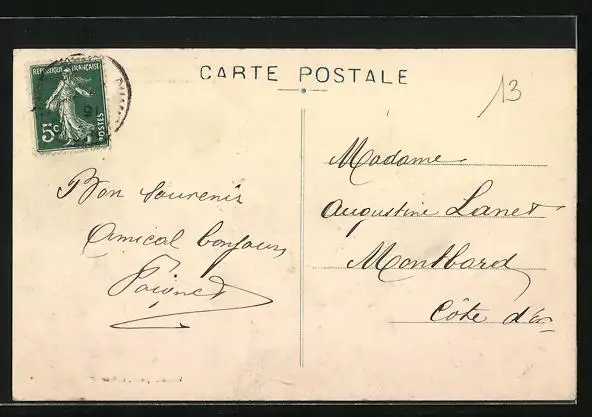 CARTE POSTALE
13
REPUBLIQUE FRANÇAISE
5c
POSTES
Bon souvenir
Amical bonjour
Madame
Augustine Lanet
Montbard
Côte d'or